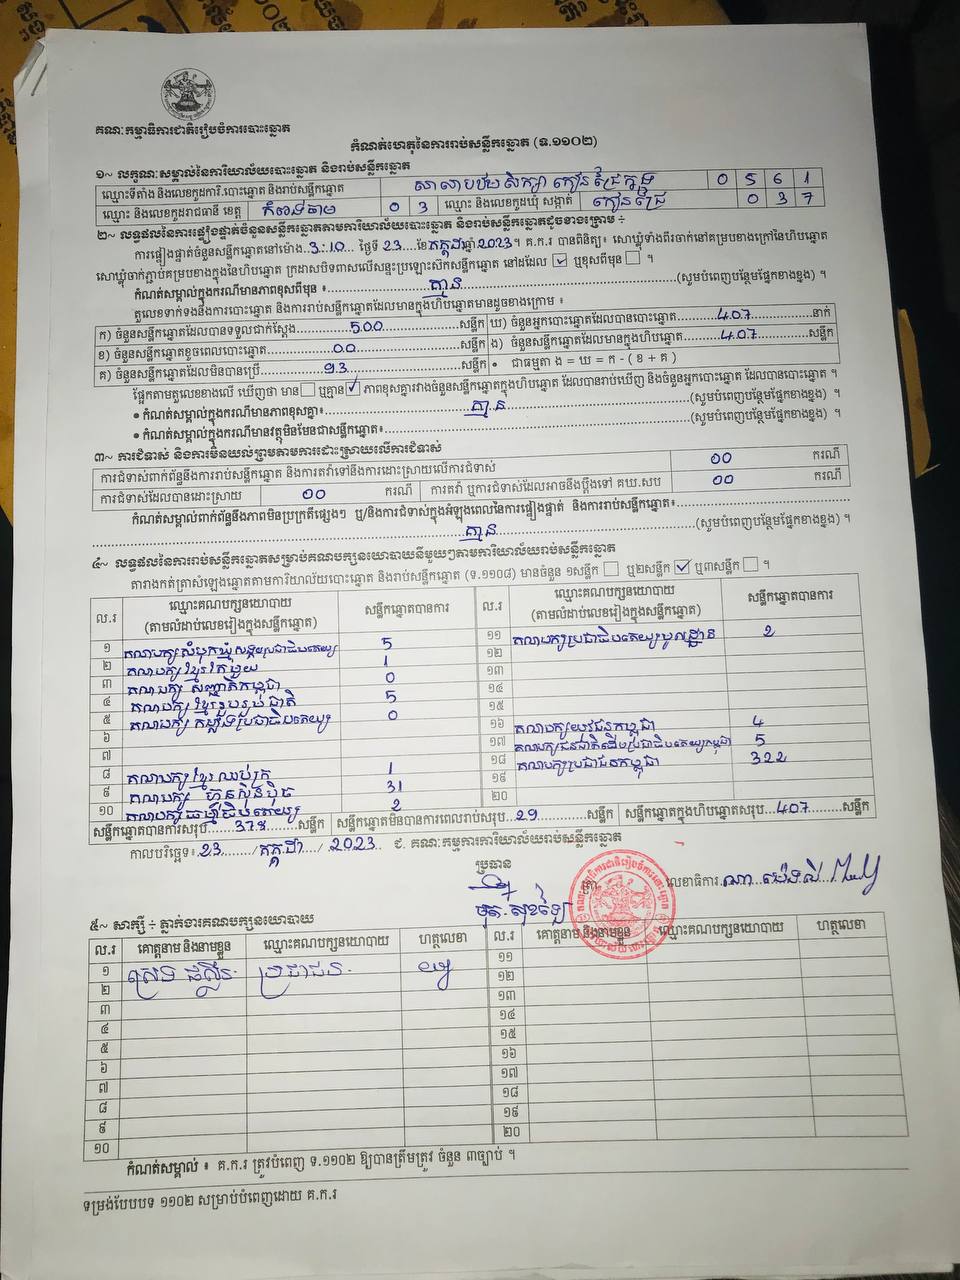 គណៈកម្មាធិការជាតិរៀបចំការបោះឆ្នោត
កំណត់ហេតុនៃការរាប់សន្លឹកឆ្នោត (ទ.១១០២)
១~ លក្ខណៈសម្គាល់នៃការិយាល័យបោះឆ្នោត និងរាប់សន្លឹកឆ្នោត
ឈ្មោះទីតាំង និងលេខកូដការិ.បោះឆ្នោត និងរាប់សន្លឹកឆ្នោត សាលាបឋមសិក្សា កៀនជ្រៃ 0 5 6 1
ឈ្មោះ និងលេខកូដរាជធានី ខេត្ត កំពង់ចាម 0 3 ឈ្មោះ និងលេខកូដឃុំ សង្កាត់ កៀនជ្រៃ 0 3 7
២~ លទ្ធផលនៃការផ្ទៀងផ្ទាត់ចំនួនសន្លឹកឆ្នោតតាមការិយាល័យបោះឆ្នោត និងរាប់សន្លឹកឆ្នោតដូចខាងក្រោម ÷
ការផ្ទៀងផ្ទាត់ចំនួនសន្លឹកឆ្នោតនៅម៉ោង 3:10 ថ្ងៃទី 23 ខែ កក្កដា ឆ្នាំ 2023។ គ.ក.រ បានពិនិត្យ៖ សោឃ្លុំទាំងពីរចាក់នៅគម្របខាងក្រៅនៃហិបឆ្នោត
សោឃ្លុំចាក់ភ្ជាប់គម្របខាងក្នុងនៃហិបឆ្នោត ក្រដាសបិទពាសលើសន្ទះប្រឡោះស៊កសន្លឹកឆ្នោត នៅដដែល ✓ ឬខុសពីមុន ។
កំណត់សម្គាល់ក្នុងករណីមានភាពខុសពីមុន ៖ គ្មាន (សូមបំពេញបន្ថែមផ្នែកខាងខ្នង) ។
តួលេខទាក់ទងនឹងការបោះឆ្នោត និងការរាប់សន្លឹកឆ្នោតដែលមានក្នុងហិបឆ្នោតមានដូចខាងក្រោម ៖
ក) ចំនួនសន្លឹកឆ្នោតដែលបានទទួលជាក់ស្តែង 500 សន្លឹក ឃ) ចំនួនអ្នកបោះឆ្នោតដែលបានបោះឆ្នោត 407 នាក់
ខ) ចំនួនសន្លឹកឆ្នោតខូចពេលបោះឆ្នោត 00 សន្លឹក ង) ចំនួនសន្លឹកឆ្នោតដែលមានក្នុងហិបឆ្នោត 407 សន្លឹក
គ) ចំនួនសន្លឹកឆ្នោតដែលមិនបានប្រើ 93 សន្លឹក • ជាធម្មតា ង = ឃ = ក - ( ខ + គ )
ផ្អែកតាមតួលេខខាងលើ ឃើញថា មាន ឬគ្មាន ✓ ភាពខុសគ្នារវាងចំនួនសន្លឹកឆ្នោតក្នុងហិបឆ្នោត ដែលបានរាប់ឃើញ និងចំនួនអ្នកបោះឆ្នោត ដែលបានបោះឆ្នោត ។
• កំណត់សម្គាល់ក្នុងករណីមានភាពខុសគ្នា៖ គ្មាន (សូមបំពេញបន្ថែមផ្នែកខាងខ្នង) ។
• កំណត់សម្គាល់ក្នុងករណីមានវត្ថុមិនមែនជាសន្លឹកឆ្នោត៖ (សូមបំពេញបន្ថែមផ្នែកខាងខ្នង) ។
៣~ ការជំទាស់ និងការមិនយល់ព្រមតាមការដោះស្រាយលើការជំទាស់
ការជំទាស់ពាក់ព័ន្ធនឹងការរាប់សន្លឹកឆ្នោត និងការតវ៉ាទៅនឹងការដោះស្រាយលើការជំទាស់ 00 ករណី
ការជំទាស់ដែលបានដោះស្រាយ 00 ករណី ការតវ៉ា ឬការជំទាស់ដែលអាចនឹងប្តឹងទៅ គឃ.សប 00 ករណី
កំណត់សម្គាល់ពាក់ព័ន្ធនឹងភាពមិនប្រក្រតីផ្សេងៗ ឬ/និងការជំទាស់ក្នុងអំឡុងពេលនៃការផ្ទៀងផ្ទាត់ និងការរាប់សន្លឹកឆ្នោត៖
គ្មាន (សូមបំពេញបន្ថែមផ្នែកខាងខ្នង) ។
៤~ លទ្ធផលនៃការរាប់សន្លឹកឆ្នោតសម្រាប់គណបក្សនយោបាយនីមួយៗតាមការិយាល័យរាប់សន្លឹកឆ្នោត
តារាងកត់ត្រាសំឡេងឆ្នោតតាមការិយាល័យបោះឆ្នោត និងរាប់សន្លឹកឆ្នោត (ទ.១១០៨) មានចំនួន ១សន្លឹក ឬ២សន្លឹក ✓ ឬ៣សន្លឹក ។
ល.រ ឈ្មោះគណបក្សនយោបាយ (តាមលំដាប់លេខរៀងក្នុងសន្លឹកឆ្នោត) សន្លឹកឆ្នោតបានការ
១ គណបក្សសំបុកឃ្មុំសង្គមប្រជាធិបតេយ្យ 5
២ គណបក្សខ្មែរតែមួយ 1
៣ គណបក្ស សញ្ជាតិកម្ពុជា 0
៤ គណបក្សខ្មែររួបរួមជាតិ 5
៥ គណបក្ស កម្លាំងប្រជាធិបតេយ្យ 0
៦
៧
៨ គណបក្សខ្មែរឈប់ក្រ 1
៩ គណបក្ស ហ៊្វុនស៊ិនប៉ិច 31
១០ គណបក្សធម្មាធិបតេយ្យ 2
ល.រ ឈ្មោះគណបក្សនយោបាយ (តាមលំដាប់លេខរៀងក្នុងសន្លឹកឆ្នោត) សន្លឹកឆ្នោតបានការ
១១ គណបក្សប្រជាធិបតេយ្យមូលដ្ឋាន 2
១២
១៣
១៤
១៥
១៦ គណបក្សយុវជនកម្ពុជា 4
១៧ គណបក្សជនជាតិដើមប្រជាធិបតេយ្យកម្ពុជា 5
១៨ គណបក្សប្រជាជនកម្ពុជា 322
១៩
២០
សន្លឹកឆ្នោតបានការសរុប 378 សន្លឹក សន្លឹកឆ្នោតមិនបានការពេលរាប់សរុប 29 សន្លឹក សន្លឹកឆ្នោតក្នុងហិបឆ្នោតសរុប 407 សន្លឹក
កាលបរិច្ឆេទ៖ 23 / កក្កដា / 2023 ៩. គណៈកម្មការការិយាល័យរាប់សន្លឹកឆ្នោត
ប្រធាន ត្រា លេខាធិការ
៥~ សាក្សី ÷ ភ្នាក់ងារគណបក្សនយោបាយ
ល.រ គោត្តនាម និងនាមខ្លួន ឈ្មោះគណបក្សនយោបាយ ហត្ថលេខា
១ ប្រជាជន
២
៣
៤
៥
៦
៧
៨
៩
១០
ល.រ គោត្តនាម និងនាមខ្លួន ឈ្មោះគណបក្សនយោបាយ ហត្ថលេខា
១១
១២
១៣
១៤
១៥
១៦
១៧
១៨
១៩
២០
កំណត់សម្គាល់ ៖ គ.ក.រ ត្រូវបំពេញ ទ.១១០២ ឱ្យបានត្រឹមត្រូវ ចំនួន ៣ច្បាប់ ។
ទម្រង់បែបបទ ១១០២ សម្រាប់បំពេញដោយ គ.ក.រ